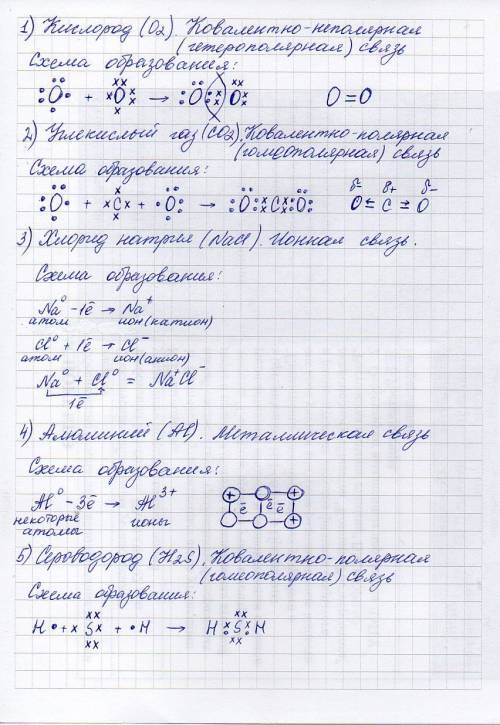 1) Кислород (O₂). Ковалентно-неполярная
(гетерополярная) связь
Схема образования:
O + O → O O O=O
2) Углекислый газ (CO₂). Ковалентно-полярная
(гомеополярная) связь
Схема образования:
δ- δ+ δ-
O + C + O → O C O O ⇇ C ⇉ O
3) Хлорид натрия (NaCl). Ионная связь.
Схема образования:
Na⁰ - 1ē → Na⁺
атом ион (катион)
Cl⁰ + 1ē → Cl⁻
атом ион (анион)
Na⁰ + Cl⁰ = Na⁺Cl⁻
1ē
4) Алюминий (Al). Металлическая связь
Схема образования:
Al⁰ - 3ē → Al³⁺
некоторые ионы
атомы
+ +
ē ē ē
+
5) Сероводород (H₂S). Ковалентно-полярная
(гомеополярная) связь
Схема образования:
H • + S + • H → H S H